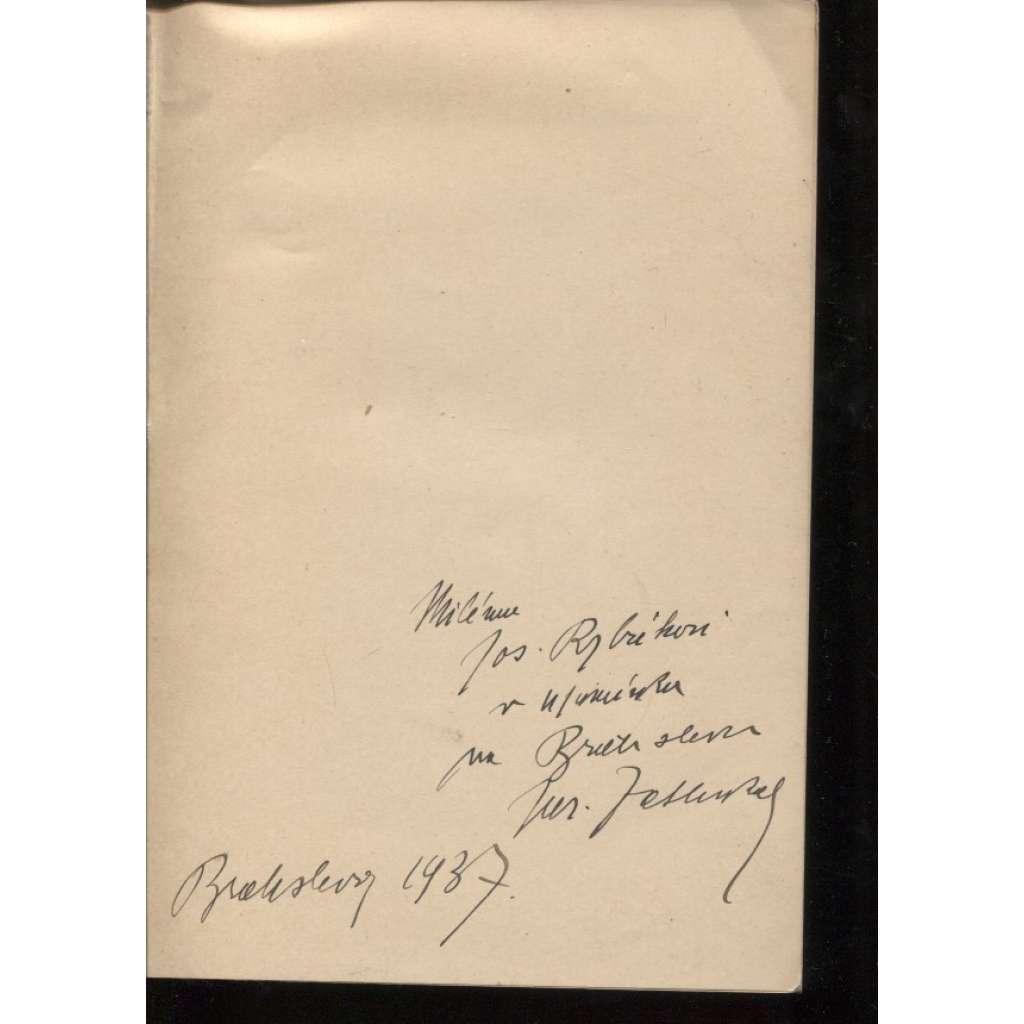 Milému
Jos. Rybákovi
v upomínku
na Bratislavu
Jar. Zatloukal
Bratislava 1937.